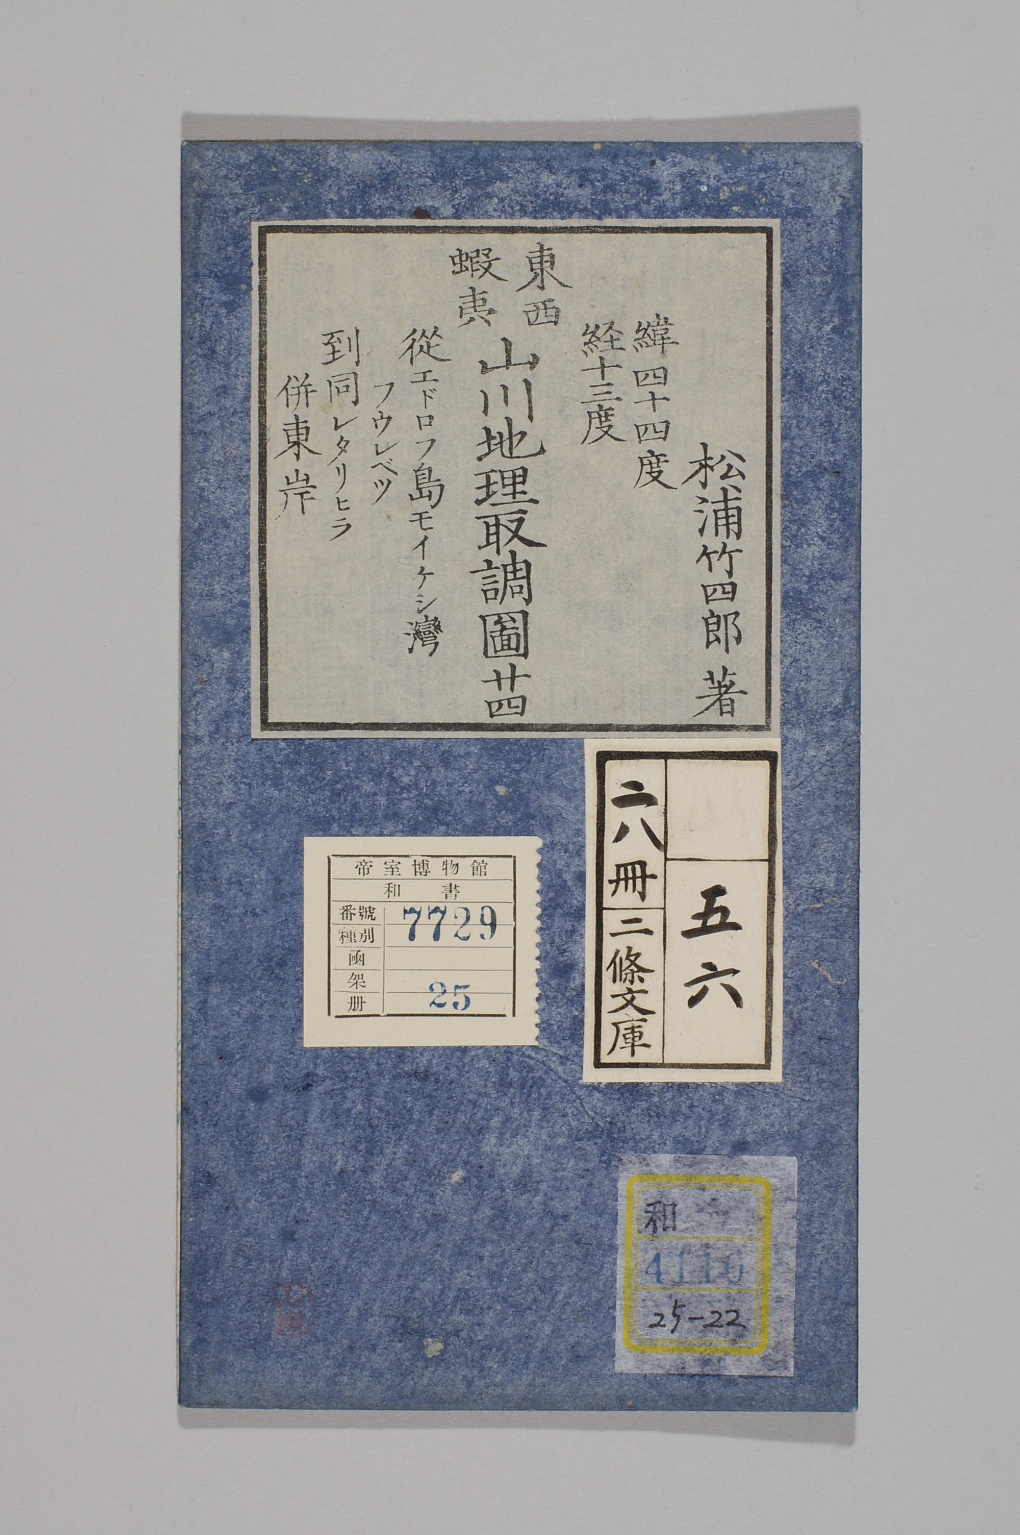 松浦竹四郎著
緯四十四度
経十三度
東西
蝦夷
山川地理取調圖廿四
從エドロフ島モイケシ灣
フウレベツ
到同レタリヒラ
併東岸
五六
二八冊
二條文庫
帝室博物館
和書
番號 7729
種別
函
架
册 25
和
4110
25-22